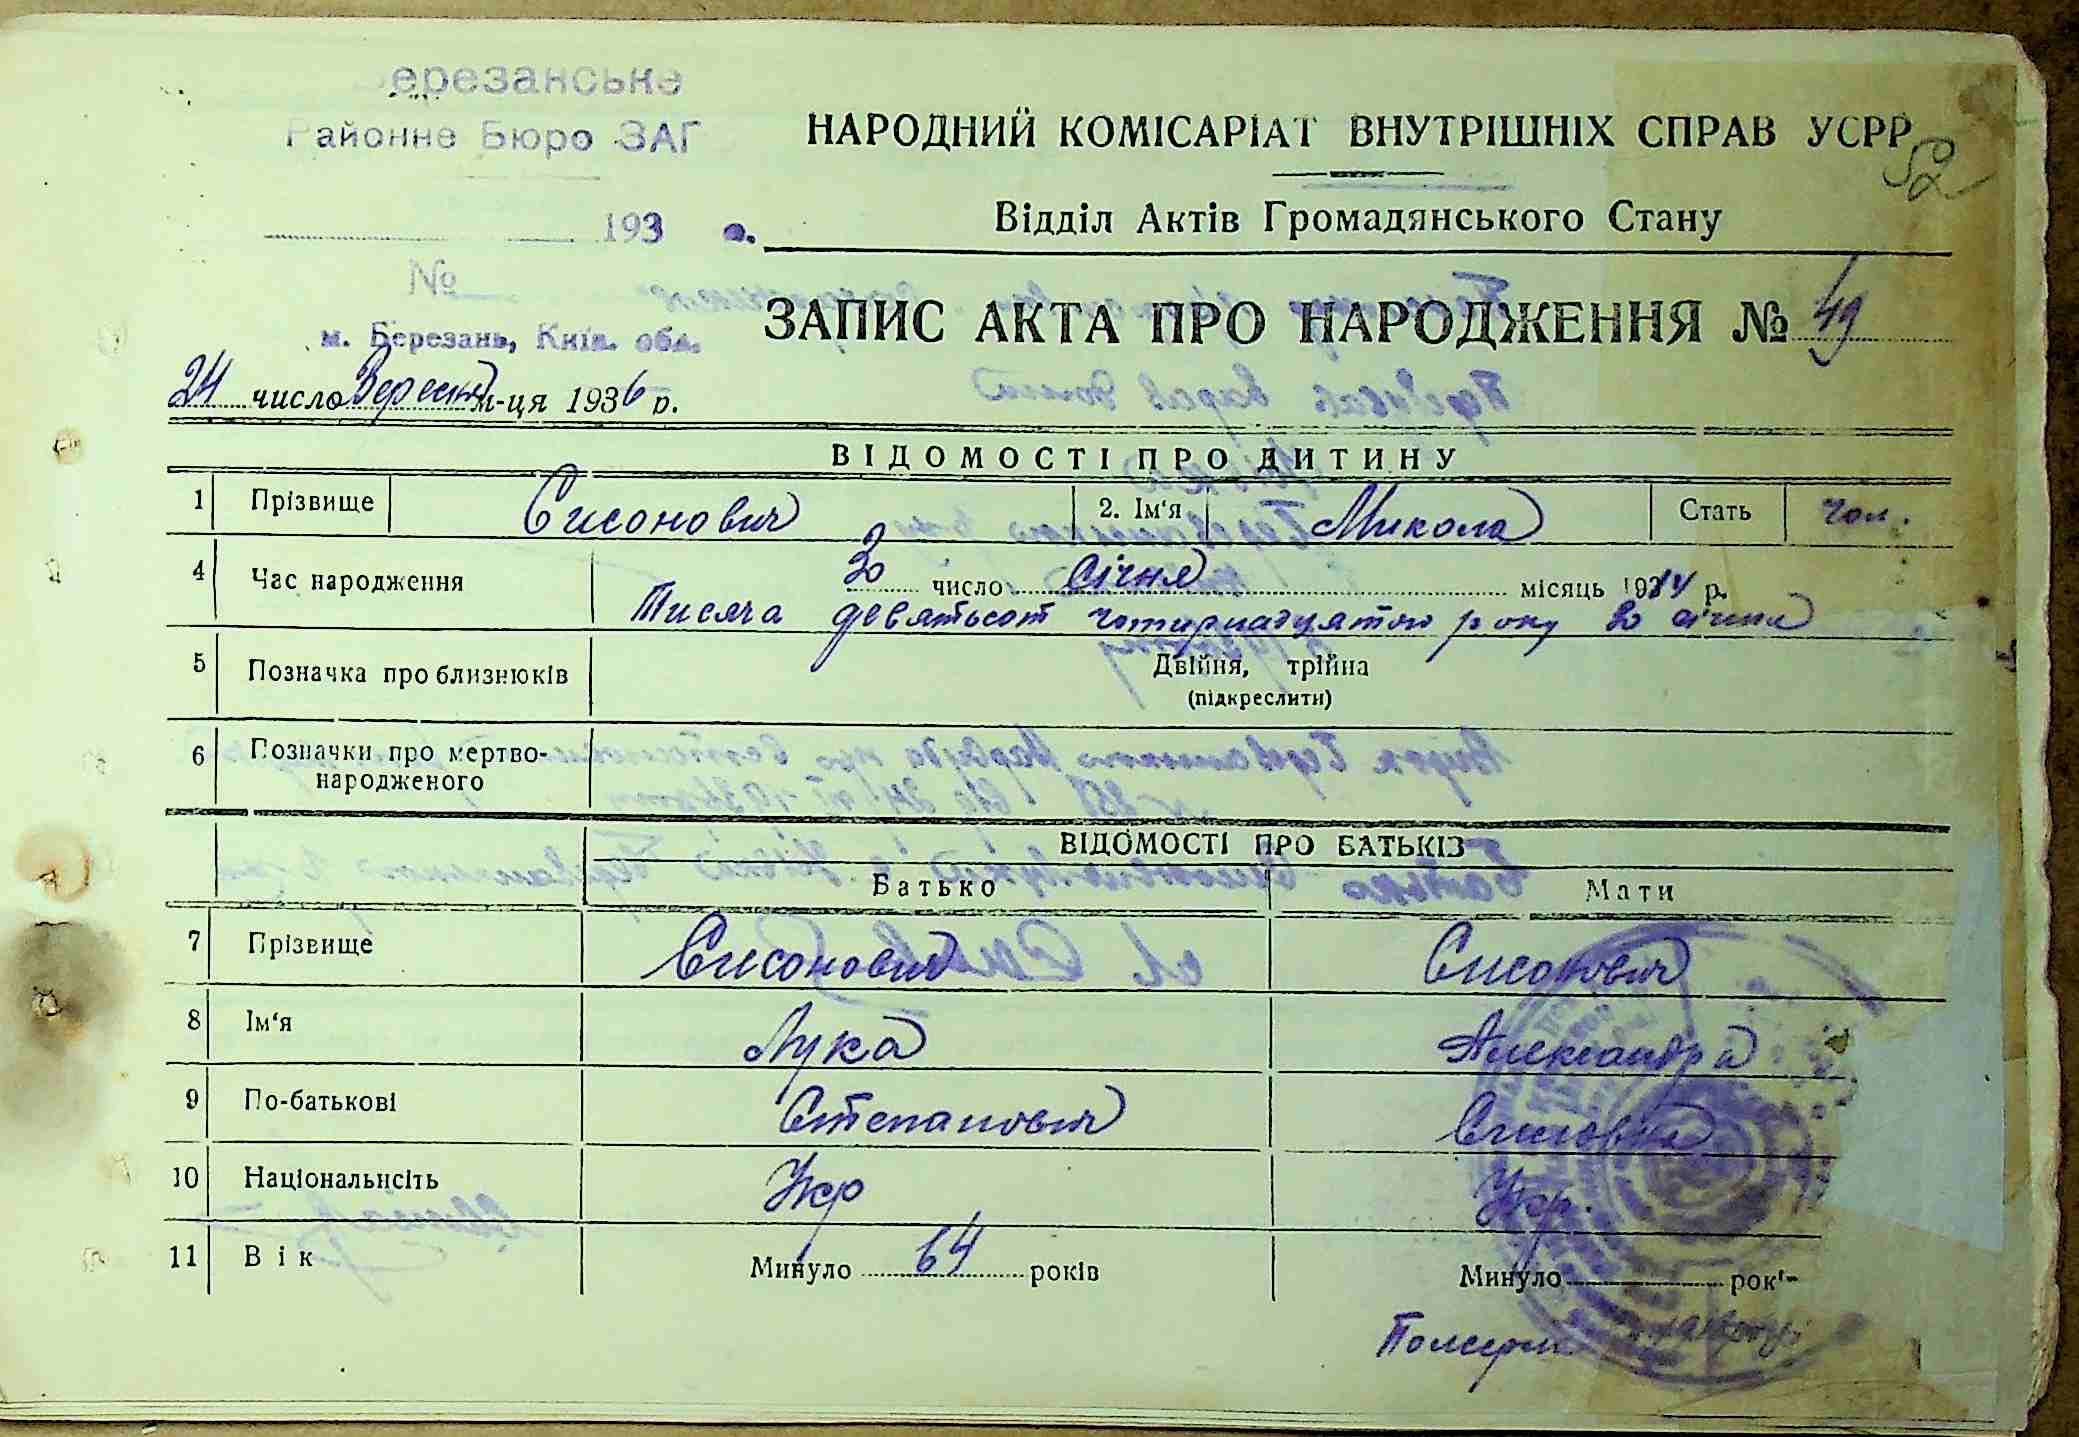 Березанське
Районне Бюро ЗАГ
193 р.
№
м. Березань, Київ. обл.
52
НАРОДНИЙ КОМІСАРІАТ ВНУТРІШНІХ СПРАВ УСРР
Відділ Актів Громадянського Стану
ЗАПИС АКТА ПРО НАРОДЖЕННЯ № 49
24 число Вересня м-ця 1936 р.
ВІДОМОСТІ ПРО ДИТИНУ
1 Прізвище Сисонович 2. Ім'я Микола Стать Чол.
4 Час народження 20 число січня місяць 1914 р.
Тисяча девятьсот чотирнадцятого року 20 січня
5 Позначка про близнюків Двійня, трійна
(підкреслити)
6 Позначки про мертво-
народженого
ВІДОМОСТІ ПРО БАТЬКІВ
Батько Мати
7 Прізвище Сисонович Сисонович
8 Ім'я Лука Александра
9 По-батькові Степанович
10 Національність Укр Укр.
11 Вік Минуло 64 років Минуло рок